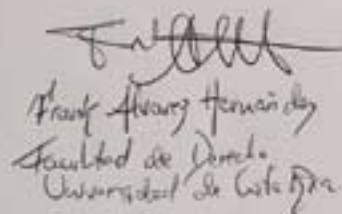 Frank Álvarez Hernández
Facultad de Derecho
Universidad de Costa Rica.